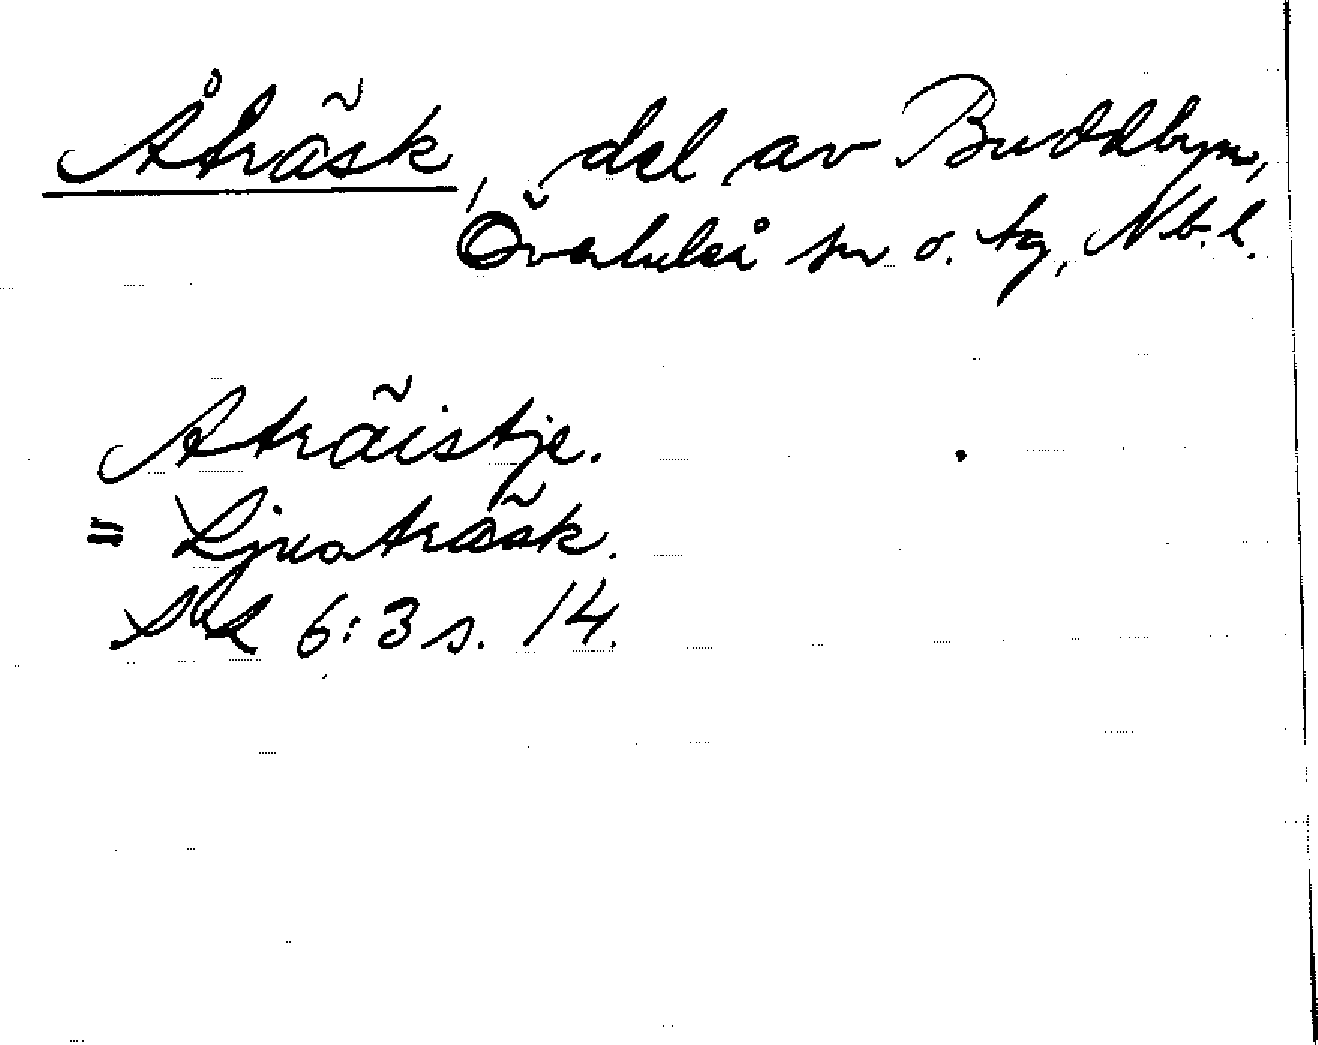 Åträsk, del av Buddbyn,
Överluleå sn o. tg, Nb. l.
Aträistje.
= Ljusträsk.
6:3 s. 14.